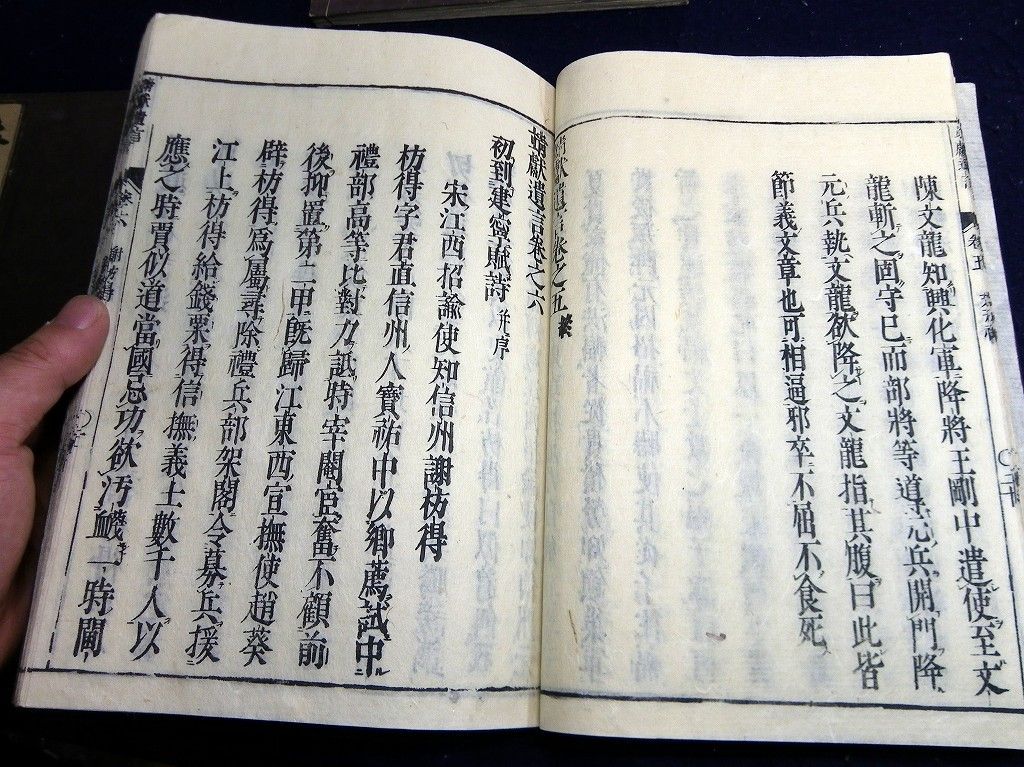 陳文龍知興化軍降將王剛中遣使至文
龍斬之固守已而部將等導元兵開門降
元兵執文龍欲降之文龍指其腹曰此皆
節義文章也可相逼邪卒不屈不食死
靖獻遺言卷之五終
靖獻遺言卷之六
初到建寧賦詩并序
宋江西招諭使知信州謝枋得
枋得字君直信州人寶祐中以鄉薦試中
禮部高等比對力詆時宰閹宦奮不顧前
後抑置第二甲既歸江東西宣撫使趙葵
辟枋得爲屬尋除禮兵部架閣令募兵援
江上枋得給錢粟得信撫義士數千人以
應之時賈似道當國忌功欲汚衊一時閫